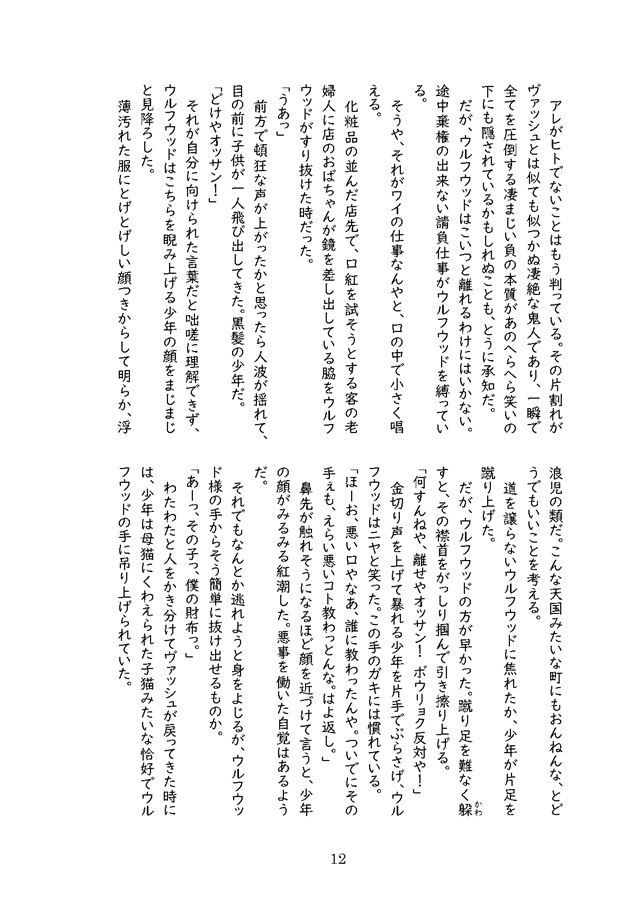 アレがヒトでないことはもう判っている。その片割れが
ヴァッシュとは似ても似つかぬ凄絶な鬼人であり、一瞬で
全てを圧倒する凄まじい負の本質があのへらへら笑いの
下にも隠されているかもしれぬことも、とうに承知だ。
だが、ウルフウッドはこいつと離れるわけにはいかない。
途中棄権の出来ない請負仕事がウルフウッドを縛ってい
る。
そうや、それがワイの仕事なんやと、口の中で小さく唱
える。
化粧品の並んだ店先で、口紅を試そうとする客の老
婦人に店のおばちゃんが鏡を差し出している脇をウルフ
ウッドがすり抜けた時だった。
「うあっ」
前方で頓狂な声が上がったかと思ったら人波が揺れて、
目の前に子供が一人飛び出してきた。黒髪の少年だ。
「どけやオッサン！」
それが自分に向けられた言葉だと咄嗟に理解できず、
ウルフウッドはこちらを睨み上げる少年の顔をまじまじ
と見降ろした。
薄汚れた服にとげとげしい顔つきからして明らか、浮
浪児の類だ。こんな天国みたいな町にもおんねんな、とど
うでもいいことを考える。
道を譲らないウルフウッドに焦れたか、少年が片足を
蹴り上げた。
だが、ウルフウッドの方が早かった。蹴り足を難なく躱
かわ
すと、その襟首をがっしり掴んで引き擦り上げる。
「何すんねや、離せやオッサン！　ボウリョク反対や！」
金切り声を上げて暴れる少年を片手でぶらさげ、ウル
フウッドはニヤと笑った。この手のガキには慣れている。
「ほーお、悪い口やなあ、誰に教わったんや。ついでにその
手ぇも、えらい悪いコト教わっとんな。はよ返し。」
鼻先が触れそうになるほど顔を近づけて言うと、少年
の顔がみるみる紅潮した。悪事を働いた自覚はあるよう
だ。
それでもなんとか逃れようと身をよじるが、ウルフウッ
ド様の手からそう簡単に抜け出せるものか。
「あーっ、その子っ、僕の財布っ。」
わたわたと人をかき分けてヴァッシュが戻ってきた時に
は、少年は母猫にくわえられた子猫みたいな恰好でウル
フウッドの手に吊り上げられていた。
12